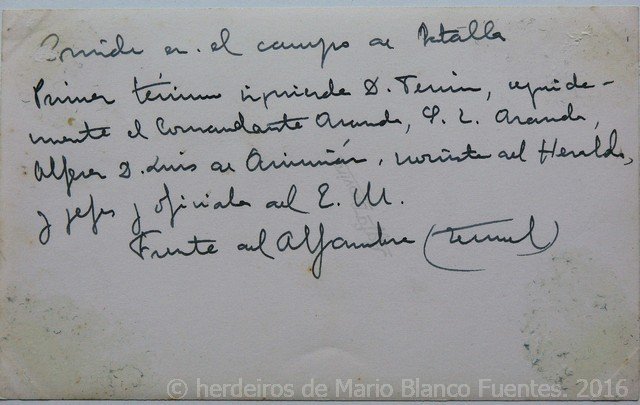 Comida en el campo de batalla
Primer término izquierda D. Fermin, seguida-
mente el Comandante Aranda, S. E. Aranda,
Alferez D. Luis de Armiñán, cronista del Heraldo,
y jefes y oficiales del E. M.
Frente del Alfambra (Teruel)
© herdeiros de Mario Blanco Fuentes. 2016